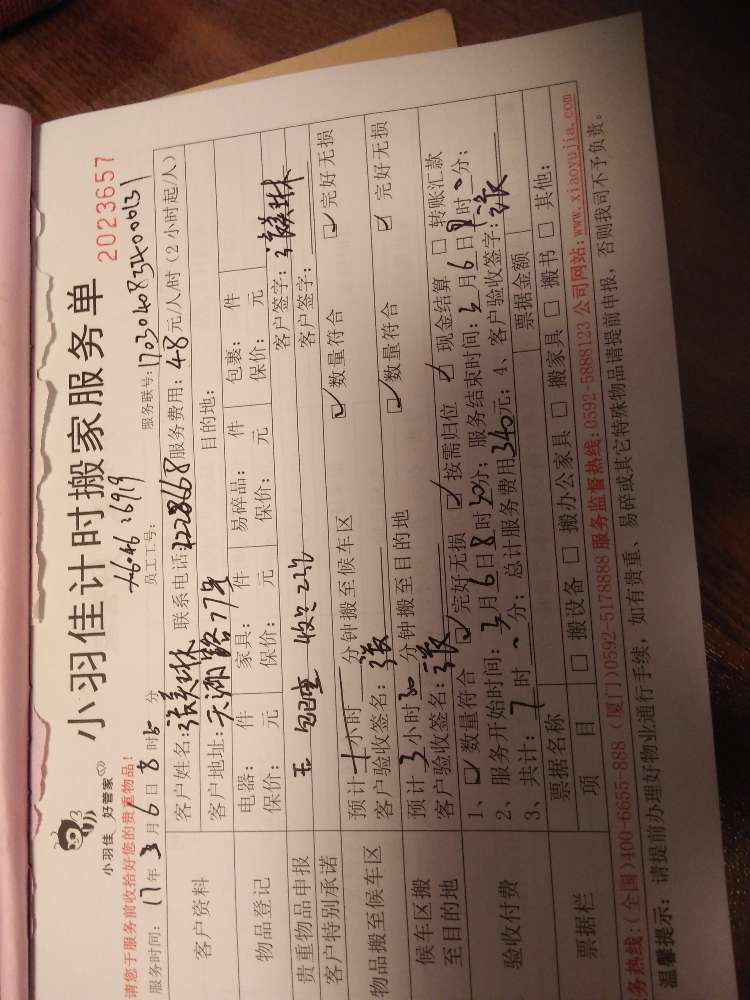 小羽佳计时搬家服务单
2023657
小羽佳 好管家
请您于服务前收拾好您的贵重物品!
员工工号:
服务联号:
服务时间: 17年3月6日8时 分
客户资料
客户姓名: 张美琳 联系电话 服务费用: 48元/人/时 (2小时起/人)
客户地址: 天湖路77号 目的地:
物品登记
电器: 件 家具: 件 易碎品: 件 包裹: 件
保价: 元 保价: 元 保价: 元 保价: 元
贵重物品申报 客户签字: 张美琳
客户特别承诺 客户签字:
物品搬至候车区
预计 小时 分钟搬至候车区 数量符合 完好无损
客户验收签名: 张
候车区搬至目的地
预计3小时30分钟搬至目的地 数量符合 完好无损
客户验收签名: 张
验收付费
1、 数量符合 完好无损 按需归位 现金结算 转账汇款
2、服务开始时间: 3月6日8时30分; 服务结束时间: 3月6日 时 分;
3、共计: 7时 分; 总计服务费用340元; 4、客户验收签字: 张
票据栏
票据名称 票据金额
项目 搬设备 搬办公家具 搬家具 搬书 其他:
务热线:(全国)400-6655-888 (厦门)0592-5178888 服务监督热线:0592-5888123 公司网站:www.xiaoyujia.com
温馨提示: 请提前办理好物业通行手续, 如有贵重、易碎或其它特殊物品请提前申报, 否则我司不予负责。